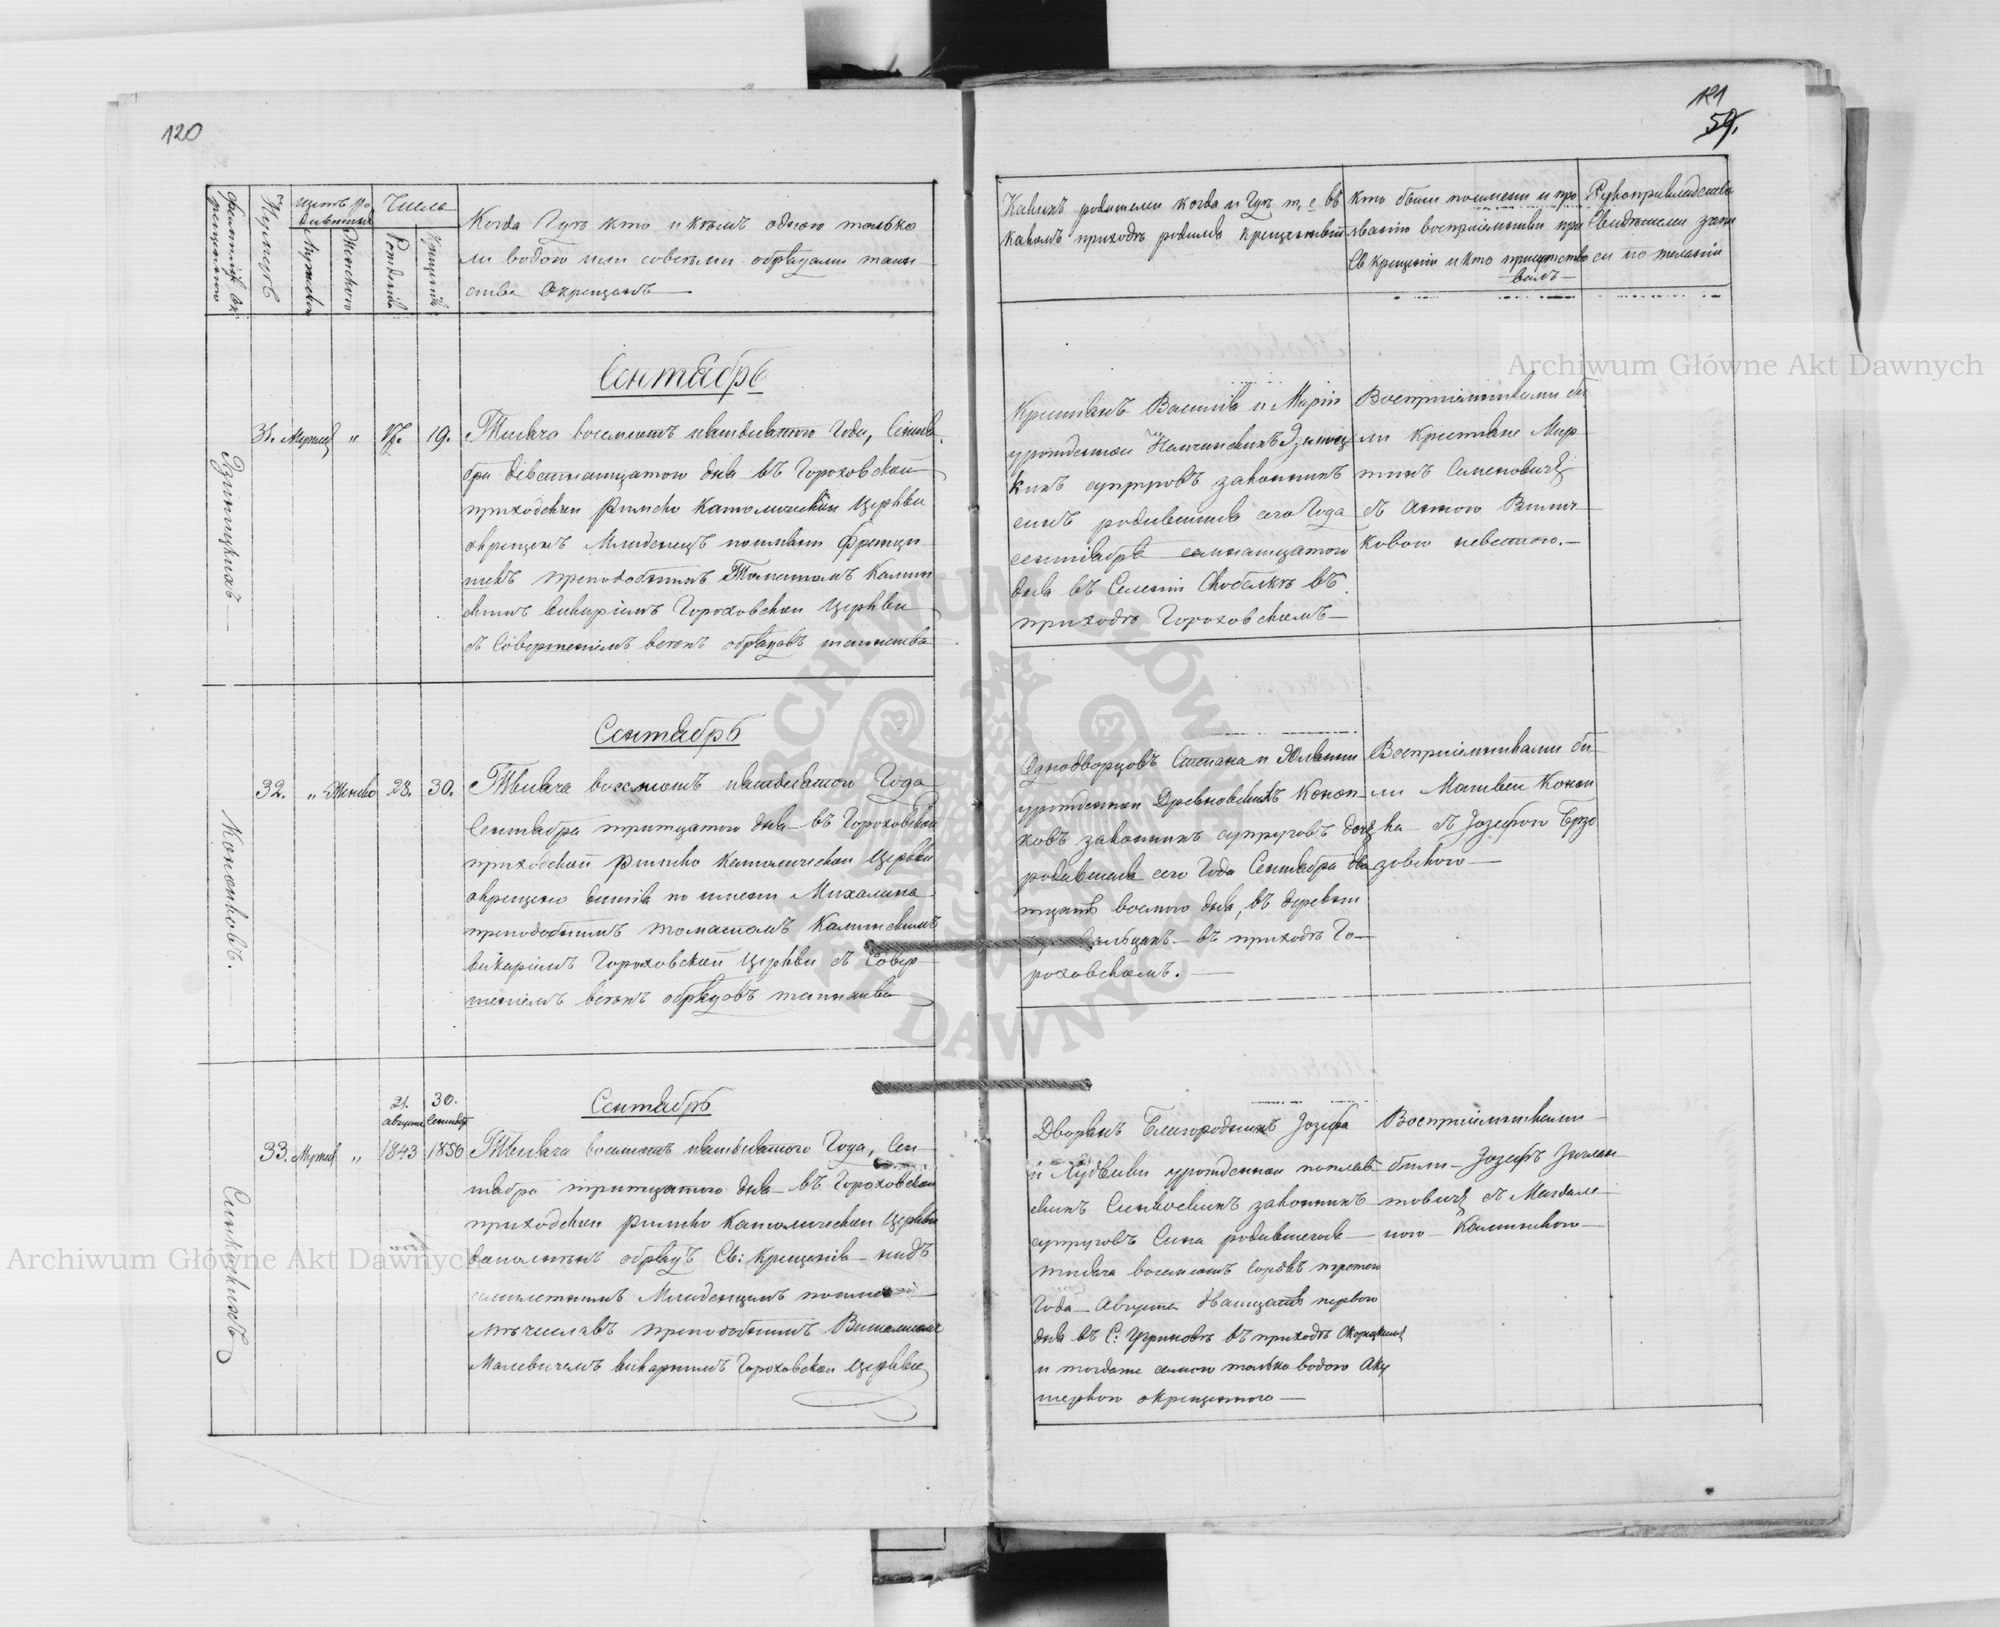 120
фамилия ок:
рещеннаго
Нумеръ
Щетъ ро
дившихся
Мужскаго
Женскаго
Числа
Рожденія
Крещенія
Когда Гдѣ кто и кѣмъ одною только
ли водою или совсѣми обрядами таин
ства Окрещенъ
Сентябрь
Эдзиницкихъ
31. Мужеск " 17. 19. Тысяча восемьсотъ пятьдесятого Года, Сентя
бря девятнадцатого дня въ Гороховской
приходской Римско Католической Церкви
окрещенъ Младенецъ по имени Францы
шекъ преподобнымъ Томашомъ Калин
скимъ викаріемъ Гороховской Церкви
съ Совершеніемъ всехъ обрядовъ таинства
Сентябрь
Кононковъ.
32. " Женско 28. 30. Тысяча восемьсотъ пятьдесятого Года
Сентября тритцатого дня въ Гороховской
приходской Римско Католической Церкви
окрещено дитя по имени Михалина
преподобнымъ Томашомъ Калинскимъ
викаріемъ Гороховской Церкви съ Совер
шеніемъ всехъ обрядовъ таинства
Сентябрь
21. 30.
августа Сентябр
33. Мужеск " 1843 1850 Тысяча восемьсотъ пятьдесятого Года, Сен
тября тритцатого дня въ Гороховской
приходской Римско Католической Церкви
дополненъ обрядъ Св: Крещенія надъ
семилетнимъ Младенцемъ по имени
Мѣчиславъ преподобнымъ
Малевичемъ викаріемъ Гороховской Церкви
121
59.
Какихъ родителей когда и Гдѣ т, е въ
какомъ приходѣ родился крещенный
кто были по имени и про
званію восприемники при
Св крещеніи и кто присутство
валъ
Рукоприкладства
Свидетелей
си по желанію
Крестьянъ Василія и Маріи
урожденной
кихъ супруговъ законныхъ
сынъ родившійся сего Года
сентября семнадцатого
дня въ Селеніи Скобелкѣ въ
приходѣ Гороховскомъ
Восприемниками бы
ли Крестьяне Мар
тинъ Семеновичъ
съ
кового невестою.
Однодворцовъ Степана и Юліанны
урожденной Древновскихъ Конон
ковъ законныхъ супруговъ дочь
родившаяся сего Года Сентября два
тцать восмого дня, въ деревни
въ приходѣ Го
роховскомъ.
Восприемниками бы
ли Матвей Конон
ка съ Іозефою Брзо
зовского
Дворянъ Благородныхъ Іозефа
и Людвики урожденной
скихъ законныхъ
супруговъ Сына родившегося
тысяча восемьсотъ сорокъ третего
Года Августа двадцать первого
дня въ С: Угриновѣ въ приходѣ
и тогдаже самою только водою Аку
шеркою окрещенного
Восприемниками
были Іозефъ
товичъ съ Магдале
ною Калинского
Archiwum Główne Akt Dawnych
ARCHIWUM GŁÓWNE AKT DAWNYCH
Archiwum Główne Akt Dawnych